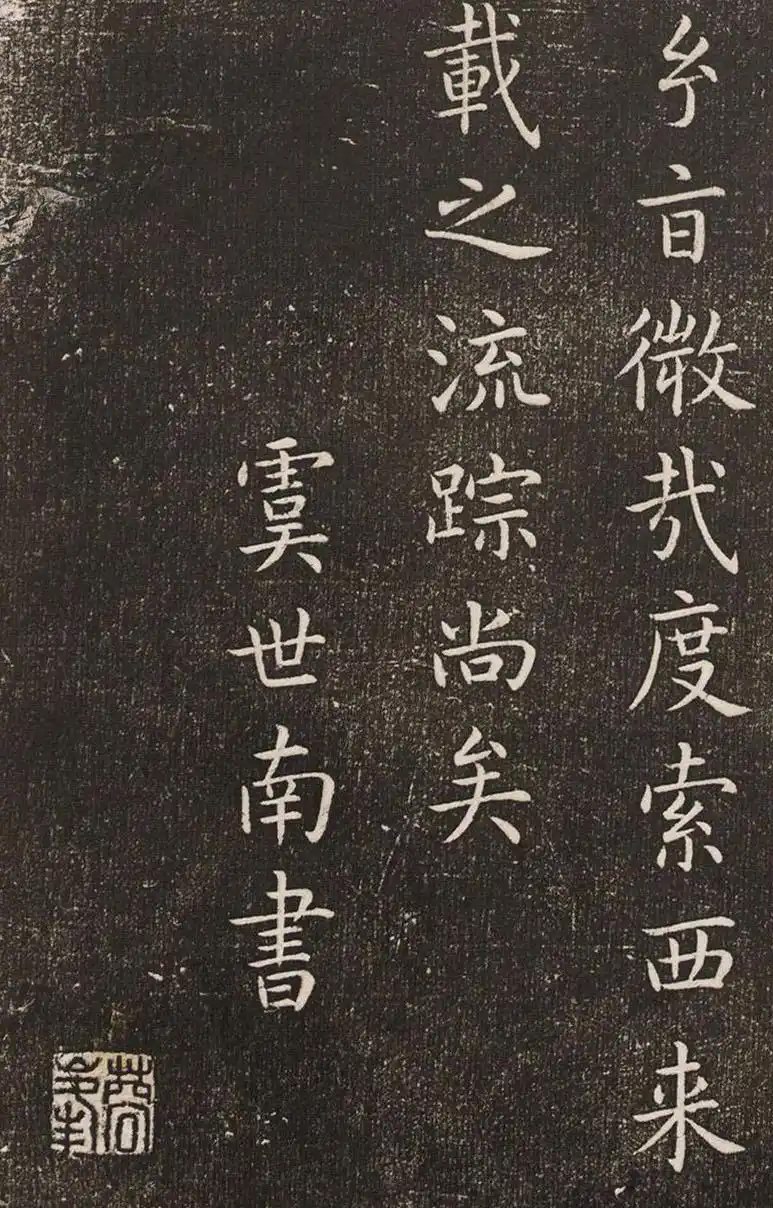 旨微哉度索西来
載之流踪尚矣
虞世南書